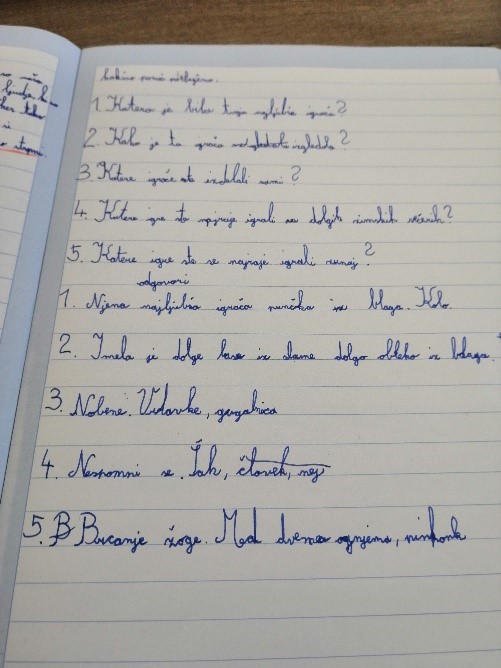 1. Katera je bila tvoja najljubša igrača?
2. Kako je ta igrača izgledala?
3. Katere igrače ste izdelali sami?
4. Katere igre ste najraje igrali na dolgih zimskih večerih?
5. Katere igre ste se najraje igrali zunaj?
odgovori
1. Njena najljubša igrača punčka iz blaga. Kolo.
2. Imela je dolge lase iz slame dolgo obleko iz blaga.
3. Nobene. Vrtavke, gugalnica
4. Nespomni se. Šah, človek, nej
5. B Brcanje žoge. Med dvema ognjema,